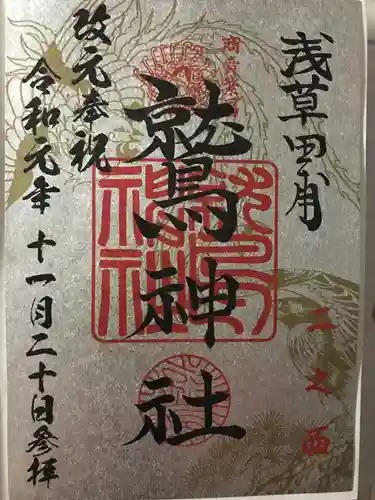 浅草田甫
鷲神社
二之酉
改元奉祝
令和元年 十一月二十日参拝